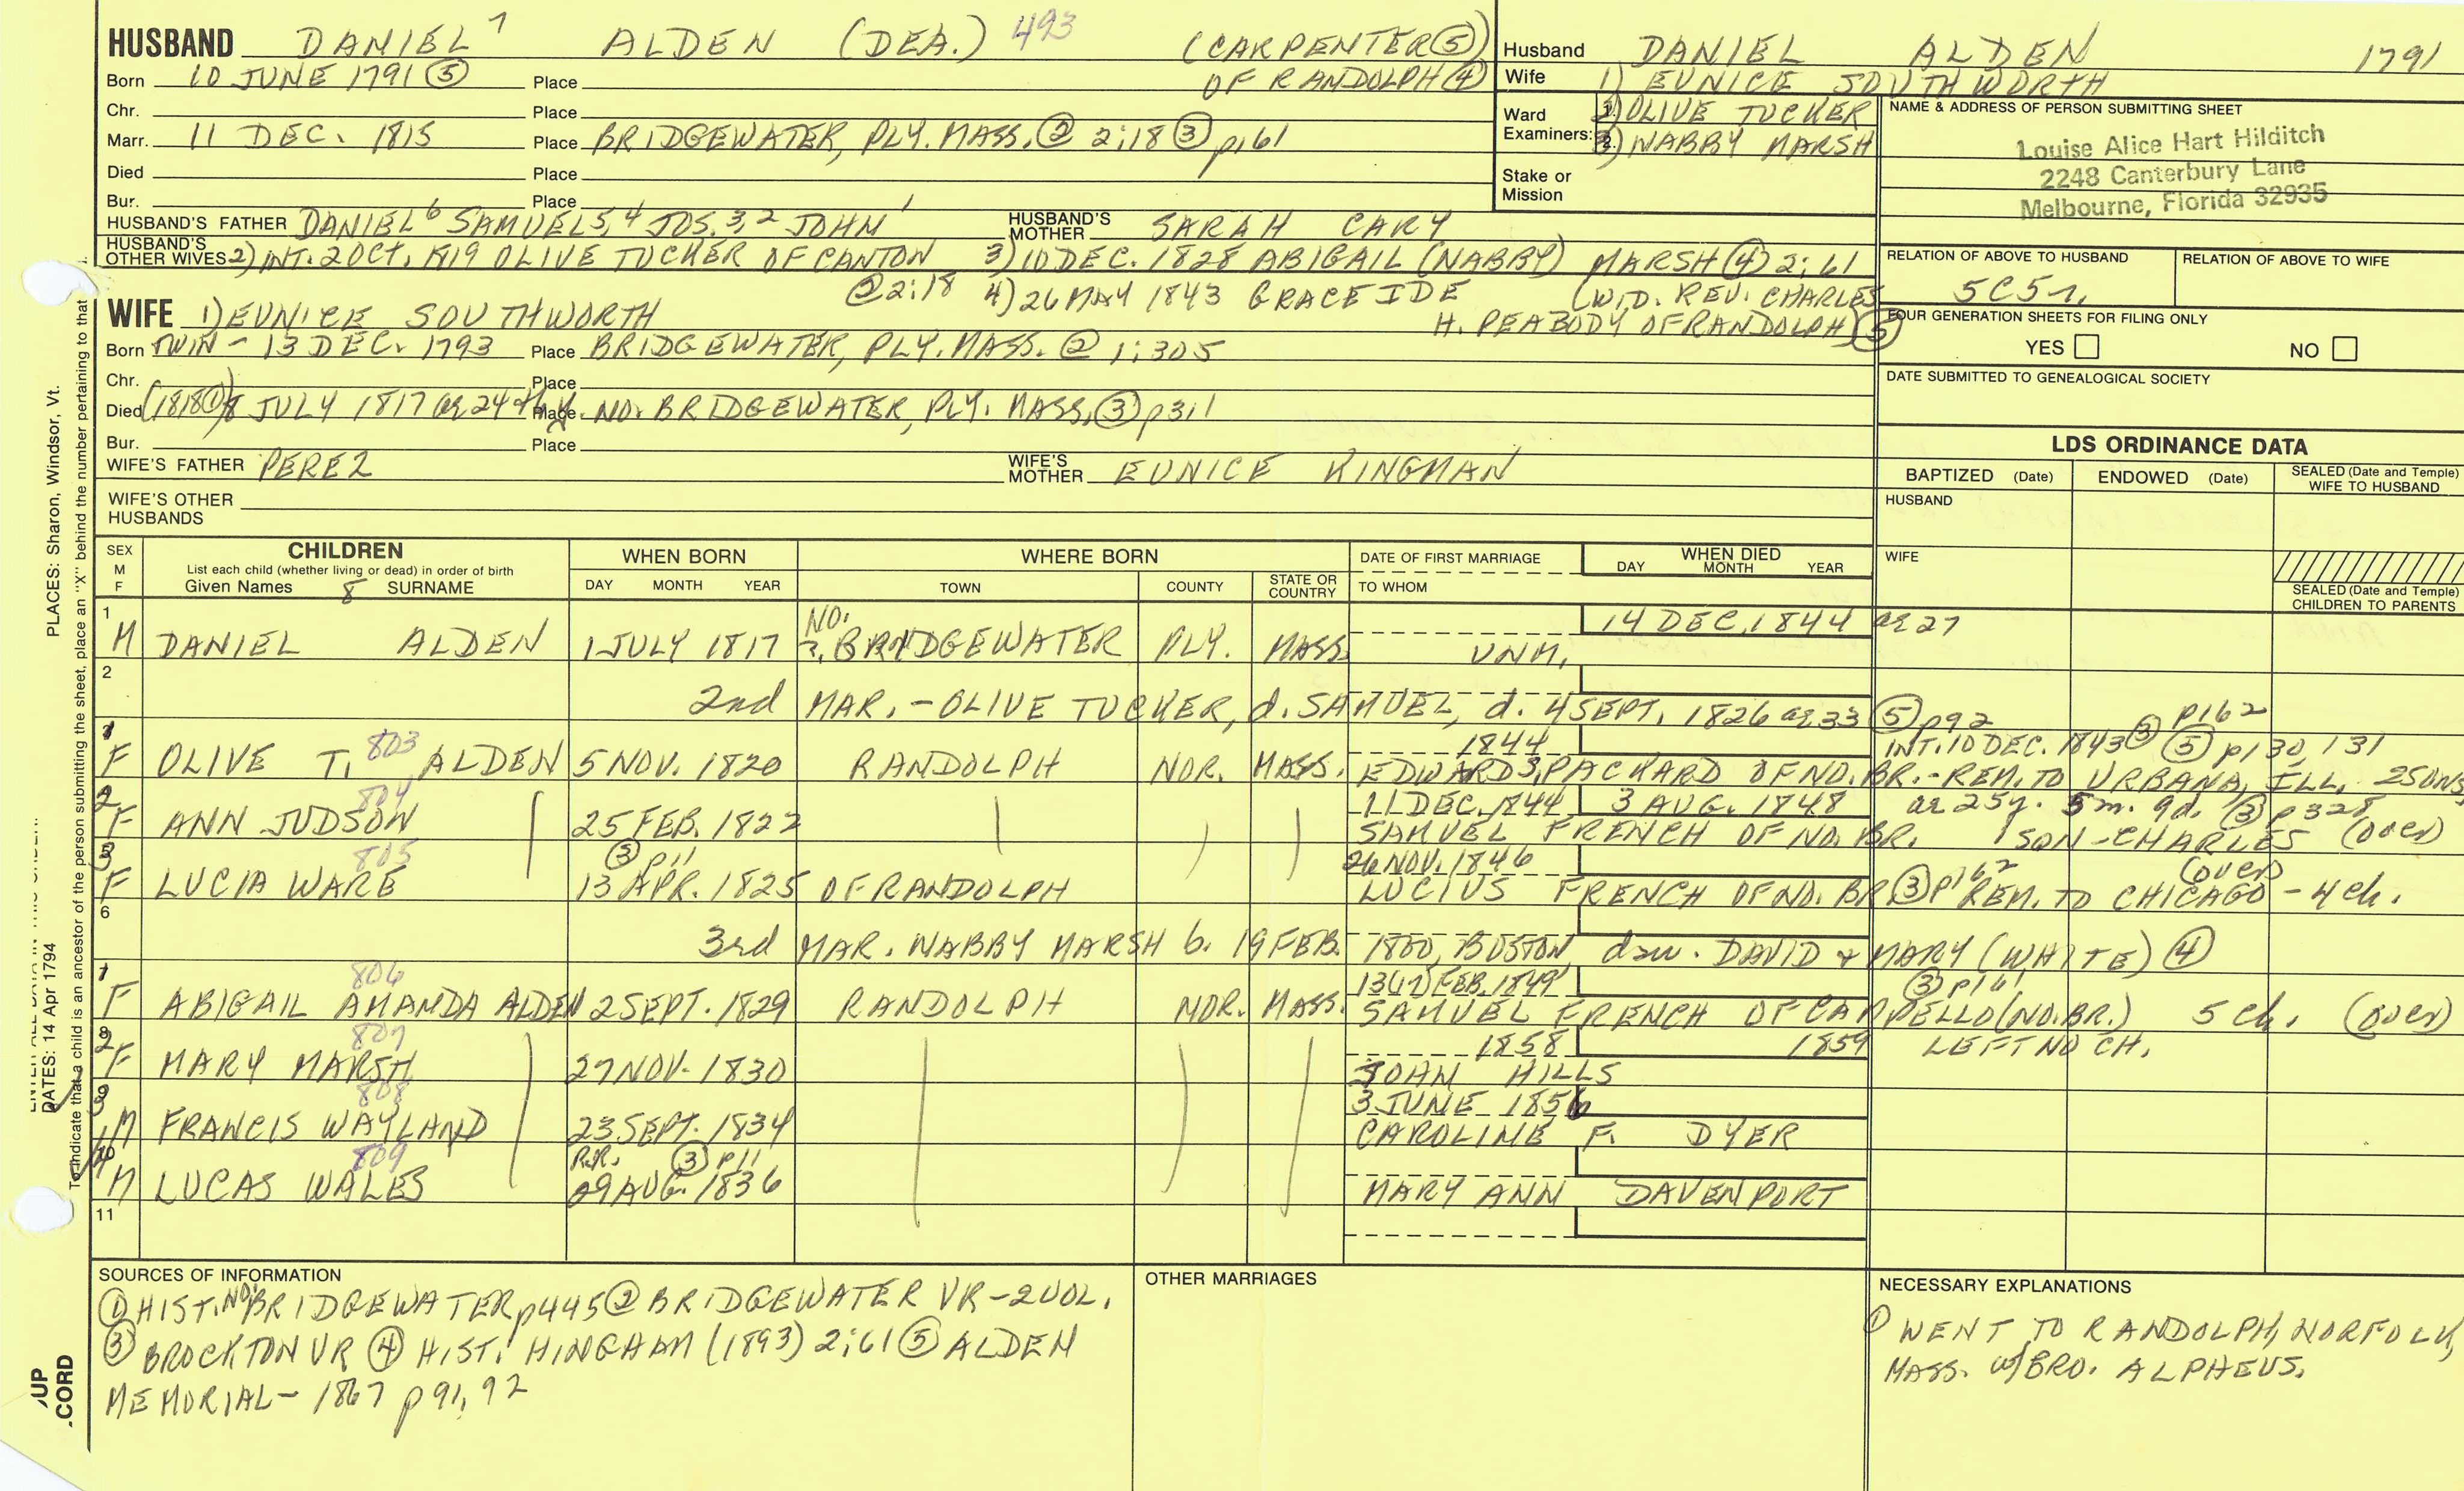 HUSBAND DANIEL 7 ALDEN (DEA.) 493 (CARPENTER ⑤)
Born 10 JUNE 1791 ⑤ Place OF RANDOLPH ④
Chr. Place
Marr. 11 DEC. 1815 Place BRIDGEWATER, PLY. MASS. ② 2:18 ③ p161
Died Place
Bur. Place
HUSBAND'S FATHER DANIEL 6 SAMUEL 5,4 JOS. 3,2 JOHN 1 HUSBAND'S MOTHER SARAH CARY
HUSBAND'S OTHER WIVES 2) INT. 2 OCT. 1819 OLIVE TUCKER OF CANTON 3) 10 DEC. 1828 ABIGAIL (NABBY) MARSH ④ 2:61
② 2:18 4) 26 MAY 1843 GRACE IDE (WID. REV. CHARLES
H. PEABODY OF RANDOLPH) ⑤
Husband DANIEL ALDEN 1791
Wife 1) EUNICE SOUTHWORTH
Ward Examiners: 1. 2) OLIVE TUCKER
2. 3) NABBY MARSH
Stake or Mission
NAME & ADDRESS OF PERSON SUBMITTING SHEET
Louise Alice Hart Hilditch
2248 Canterbury Lane
Melbourne, Florida 32935
RELATION OF ABOVE TO HUSBAND RELATION OF ABOVE TO WIFE
5C5r.
FOUR GENERATION SHEETS FOR FILING ONLY
YES NO
DATE SUBMITTED TO GENEALOGICAL SOCIETY
WIFE 1) EUNICE SOUTHWORTH
Born TWIN - 13 DEC. 1793 Place BRIDGEWATER, PLY. MASS. ② 1:305
Chr. Place
Died (1818 ①) 8 JULY 1817 ae 24 Place NO. BRIDGEWATER, PLY. MASS. ③ p311
Bur. Place
WIFE'S FATHER PEREZ WIFE'S MOTHER EUNICE KINGMAN
WIFE'S OTHER HUSBANDS
LDS ORDINANCE DATA
BAPTIZED (Date) ENDOWED (Date) SEALED (Date and Temple) WIFE TO HUSBAND
HUSBAND
WIFE
SEALED (Date and Temple) CHILDREN TO PARENTS
SEX M F CHILDREN List each child (whether living or dead) in order of birth Given Names 8 SURNAME
WHEN BORN DAY MONTH YEAR
WHERE BORN TOWN COUNTY STATE OR COUNTRY
DATE OF FIRST MARRIAGE TO WHOM
WHEN DIED DAY MONTH YEAR
1 M DANIEL ALDEN 1 JULY 1817 NO. BRIDGEWATER PLY. MASS. UNM. 14 DEC. 1844 ae 27
2 2nd MAR. - OLIVE TUCKER, d. SAMUEL, d. 4 SEPT. 1826 ae 33 ⑤ p92
1 F OLIVE T. 803 ALDEN 5 NOV. 1820 RANDOLPH NOR. MASS. 1844 INT. 10 DEC. 1843 ③ p162 ⑤ p130, 131
EDWARD S. PACKARD OF NO. BR. - REM. TO URBANA, ILL. 2 SONS
2 F ANN JUDSON 804 25 FEB. 1822 11 DEC. 1844 3 AUG. 1848 ae 25y. 5m. 9d. ③ p328
SAMUEL FRENCH OF NO. BR. 1 SON - CHARLES (over)
3 F LUCIA WARE 805 ③ p11 13 APR. 1825 OF RANDOLPH 26 NOV. 1846 (over)
LUCIUS FRENCH OF NO. BR ③ p162 REM. TO CHICAGO - 4 ch.
6 3rd MAR. NABBY MARSH b. 19 FEB. 1800, BOSTON, dau. DAVID & MARY (WHITE) ④
1 F ABIGAIL AMANDA ALDEN 806 2 SEPT. 1829 RANDOLPH NOR. MASS. 13(17) FEB. 1849 ③ p161
SAMUEL FRENCH OF CAMPELLO (NO. BR.) 5 ch. (over)
8 2 F MARY MARSH 807 27 NOV. 1830 1858 1859 LEFT NO CH.
JOHN HILLS
9 3 M FRANCIS WAYLAND 808 23 SEPT. 1834 3 JUNE 1856
CAROLINE F. DYER
10 M LUCAS WALES 809 P.R. ③ p11 29 AUG. 1836
MARY ANN DAVENPORT
11
SOURCES OF INFORMATION
① HIST. NO. BRIDGEWATER p445 ② BRIDGEWATER VR - 2 VOL.
③ BROCKTON VR ④ HIST. HINGHAM (1893) 2:61 ⑤ ALDEN
MEMORIAL - 1867 p 91, 92
OTHER MARRIAGES
NECESSARY EXPLANATIONS
① WENT TO RANDOLPH, NORFOLK,
MASS. w/ BRO. ALPHEUS.
PLACES: Sharon, Windsor, Vt.
DATES: 14 Apr 1794
To indicate that a child is an ancestor of the person submitting the sheet, place an "X" behind the number pertaining to that
UP
CORD